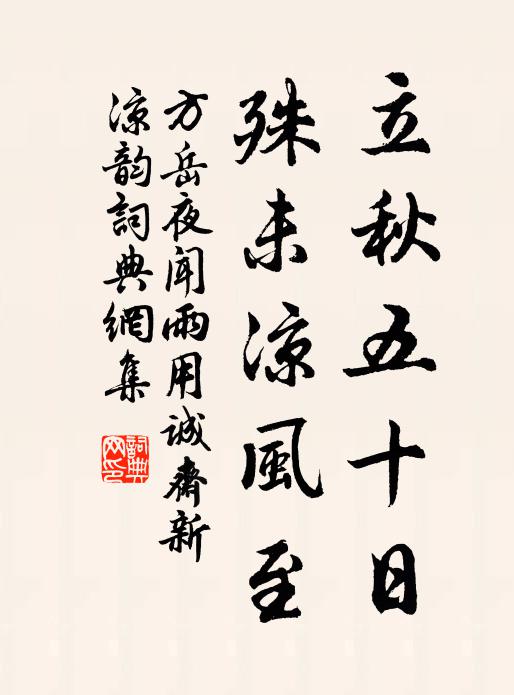 立秋五十日
殊未凉風至
方岳夜聞雨用誠齋新
凉韵詞典網集
詞典网印